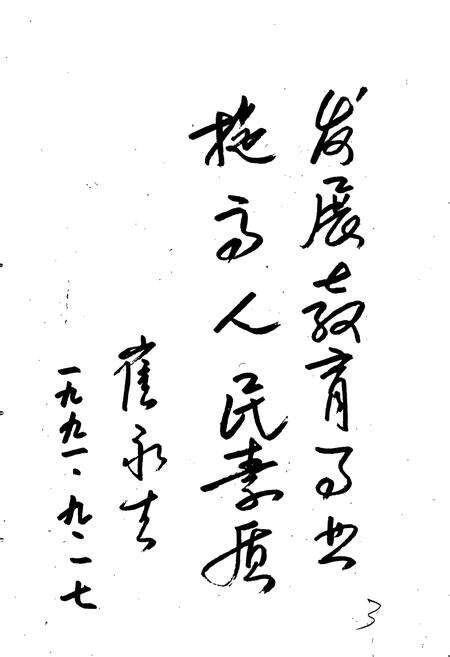 发展教育事业
提高人民素质
崔永志
一九九一、九、一七
3